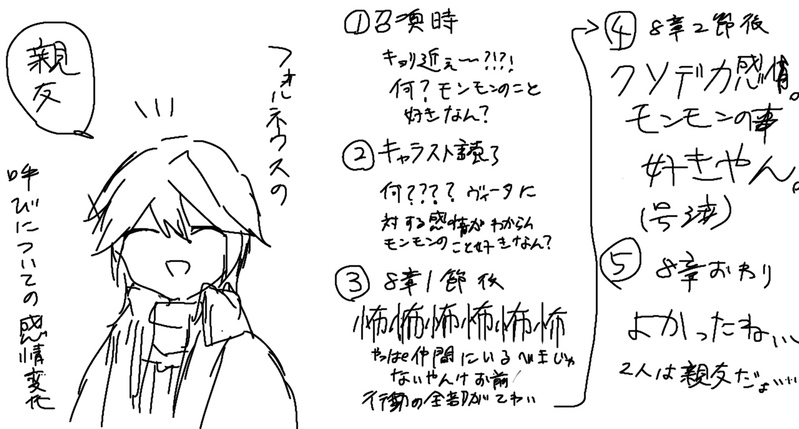 フォルネウスの
親友
呼びについての感情変化
①召喚時
キョリ近ぇ〜???!
何?モンモンのこと
好きなん?
②キャラスト読了
何????ヴィータに
対する感情がわからん
モンモンのこと好きなん?
③8章1節後
怖怖怖怖怖怖
やっぱ仲間にいるべきじゃ
ないやんけお前
行動の全部がこわい
④8章2節後
クソデカ感情。
モンモンの事
好きやん。
(号泣)
⑤8章おわり
よかったね…
2人は親友だよ…